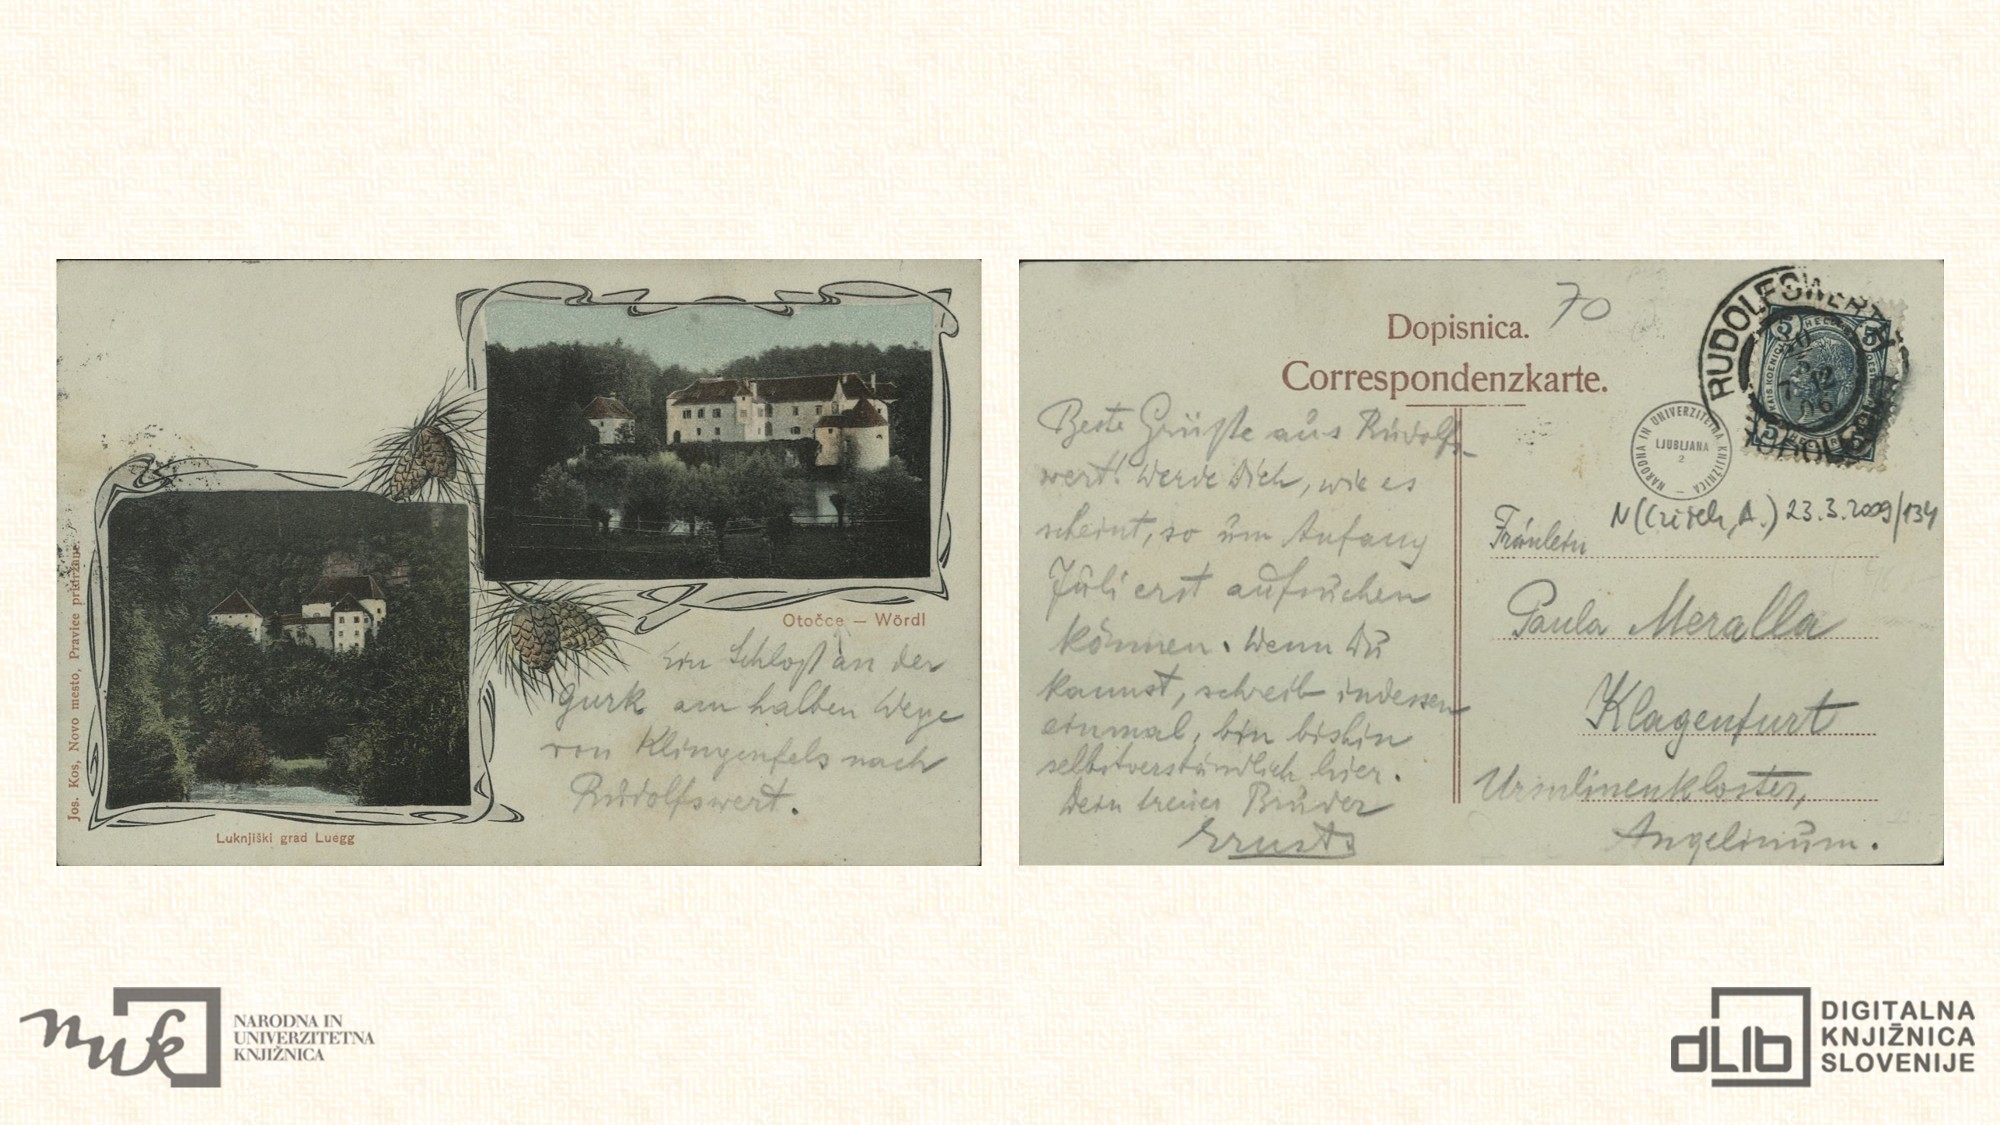 Jos. Kos, Novo mesto, Pravice pridržane.
Otočce — Wördl
Ein Schloß an der
Gurk am halben Wege
von Klingenfels nach
Rudolfswert.
Luknjiški grad Luegg
Dopisnica.
70
Correspondenzkarte.
RUDOLFSWERT
5 5
NARODNA IN UNIVERZITETNA KNJIŽNICA
LJUBLJANA
2
Beste Grüße aus Rudolfs-
wert! Werde Dich, wie es
scheint, so um Anfang
Juli erst aufsuchen
können. Wenn Du
kannst, schreib indessen
einmal, bin bishin
selbstverständlich hier.
Dein treuer Bruder
Ernst
23.3.2009/134
Fräulein
Paula Meralla
Klagenfurt
Ursulinenkloster,
Angelinum.
nuk
NARODNA IN
UNIVERZITETNA
KNJIŽNICA
dLib
DIGITALNA
KNJIŽNICA
SLOVENIJE